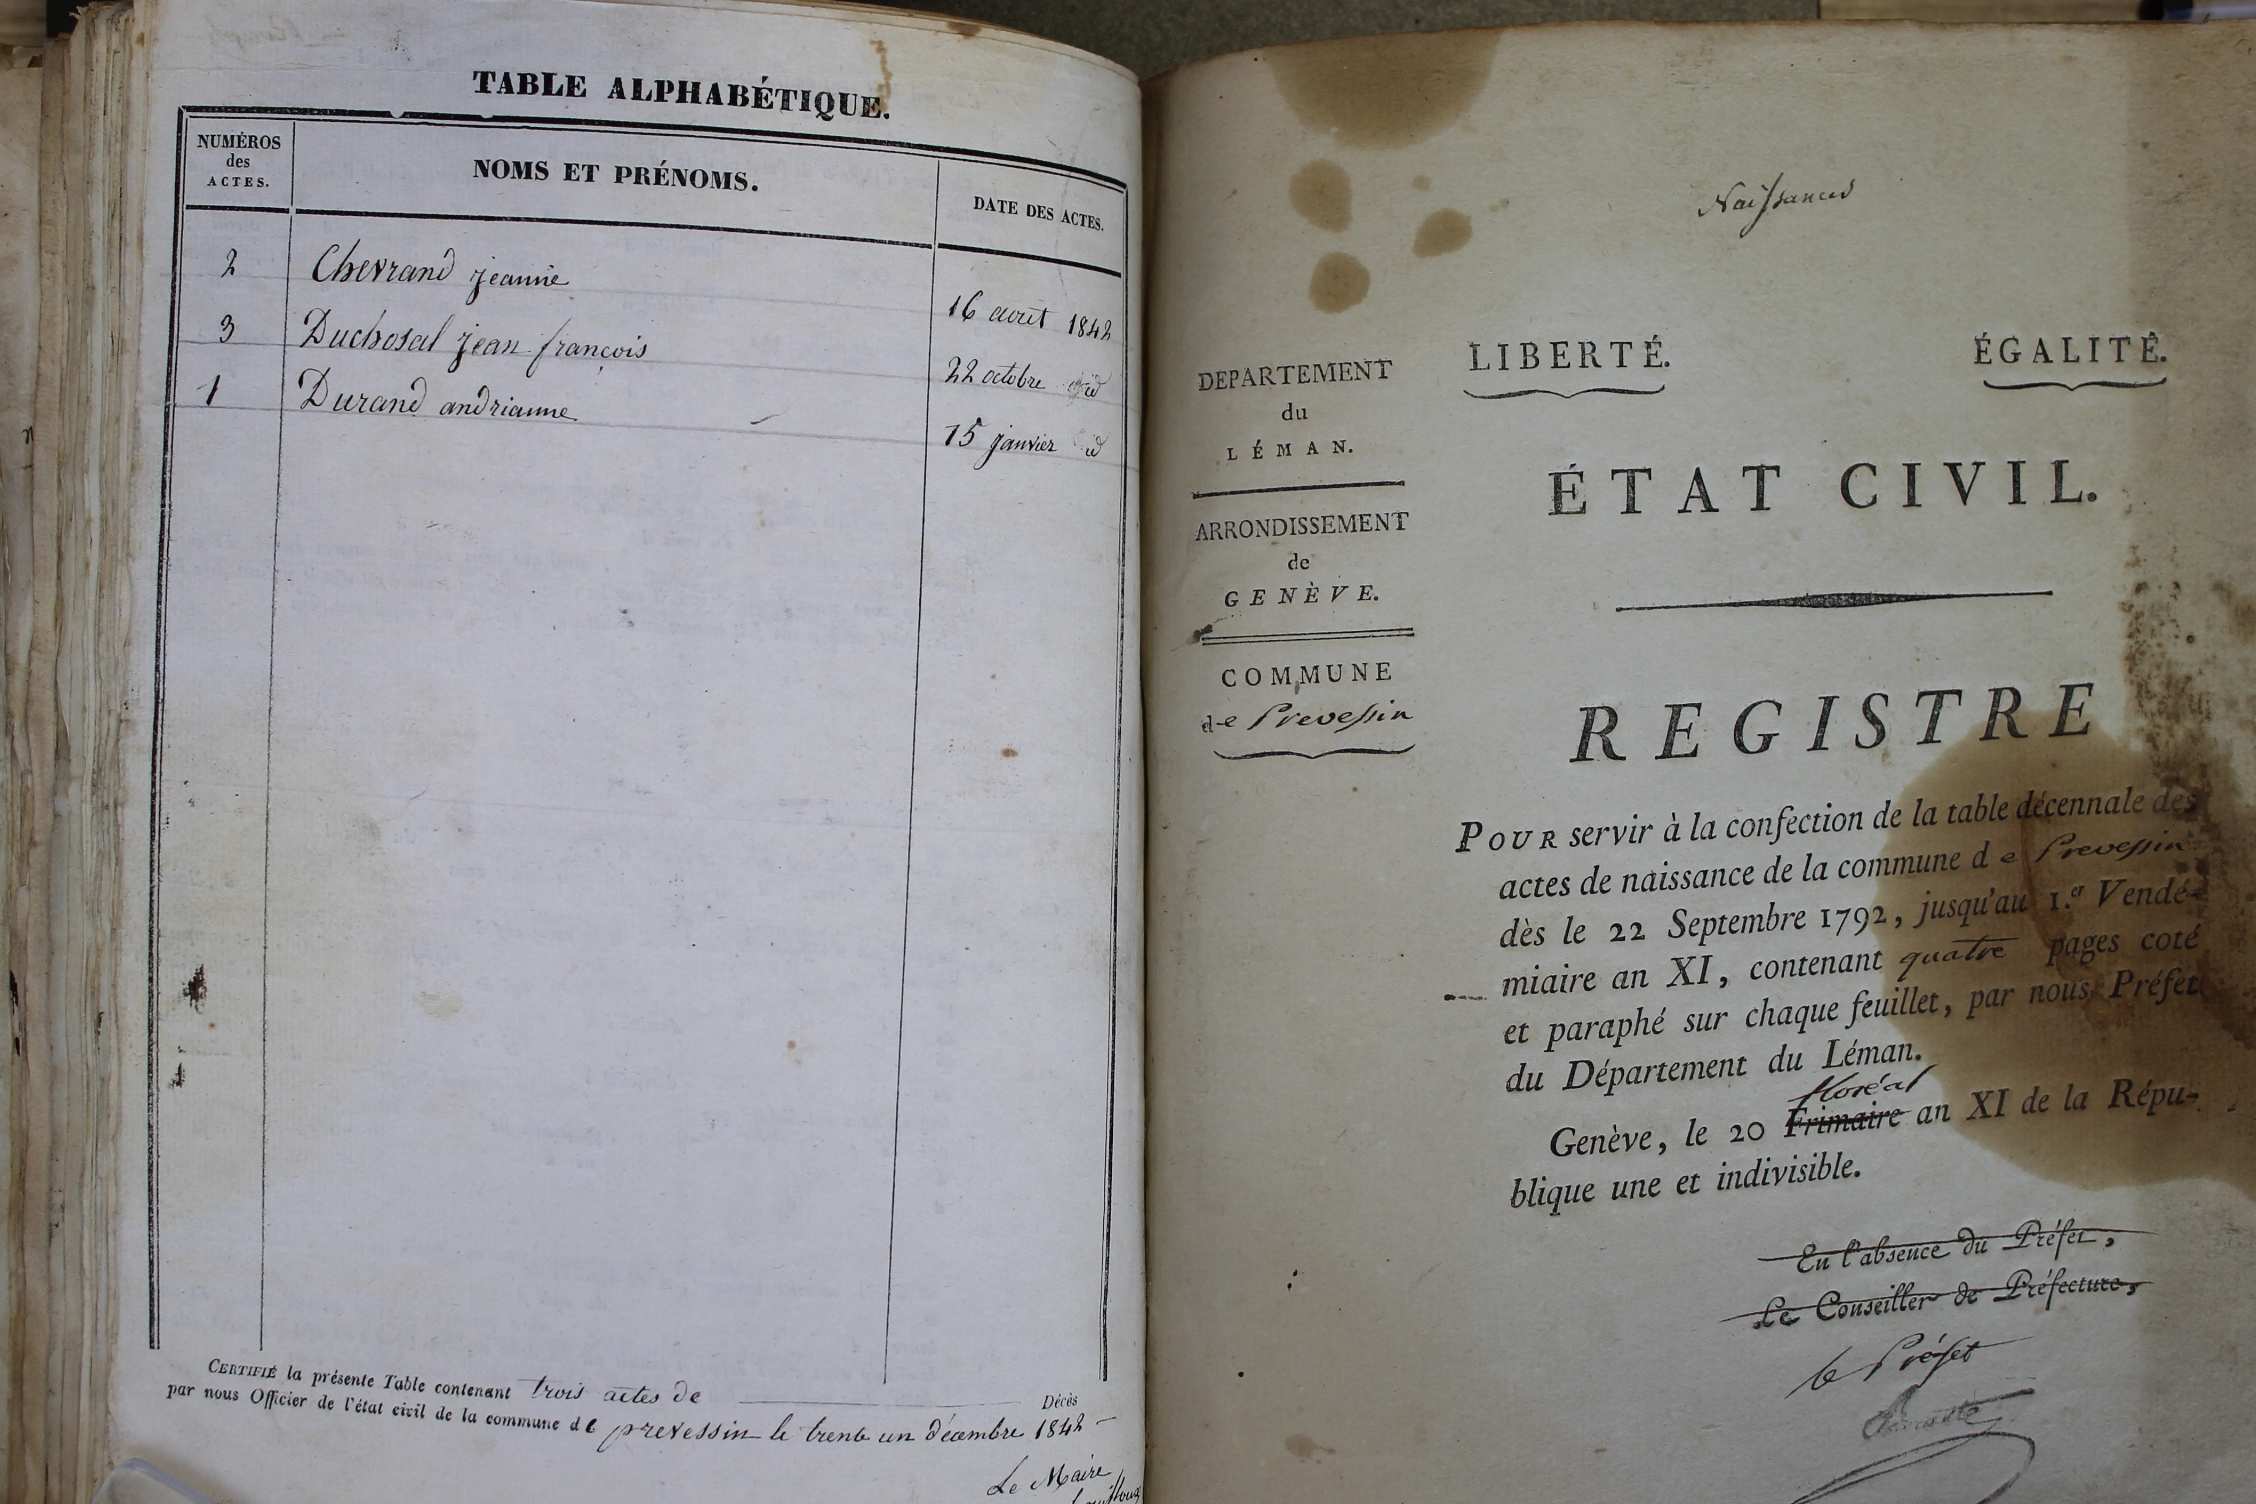 TABLE ALPHABÉTIQUE.
NUMÉROS
des
ACTES.
NOMS ET PRÉNOMS.
DATE DES ACTES.
2 Chevrand jeanne 16 août 1842
3 Duchosal jean françois 22 octobre id
1 Durand andrianne 15 janvier id
CERTIFIÉ la présente Table contenant trois actes de Décès
par nous Officier de l'état civil de la commune de prevessin le trente un décembre 1842
Le Maire
Naissances
DEPARTEMENT
du
LÉMAN.
ARRONDISSEMENT
de
GENÈVE.
COMMUNE
de Prevessin
LIBERTÉ. ÉGALITÉ.
ÉTAT CIVIL.
REGISTRE
POUR servir à la confection de la table décennale des
actes de naissance de la commune de Prevessin
dès le 22 Septembre 1792, jusqu'au 1.er Vendé-
miaire an XI, contenant quatre pages coté
et paraphé sur chaque feuillet, par nous Préfet
du Département du Léman.
floréal
Genève, le 20 Frimaire an XI de la Répu-
blique une et indivisible.
En l'absence du Préfet,
Le Conseiller de Préfecture,
le Préfet